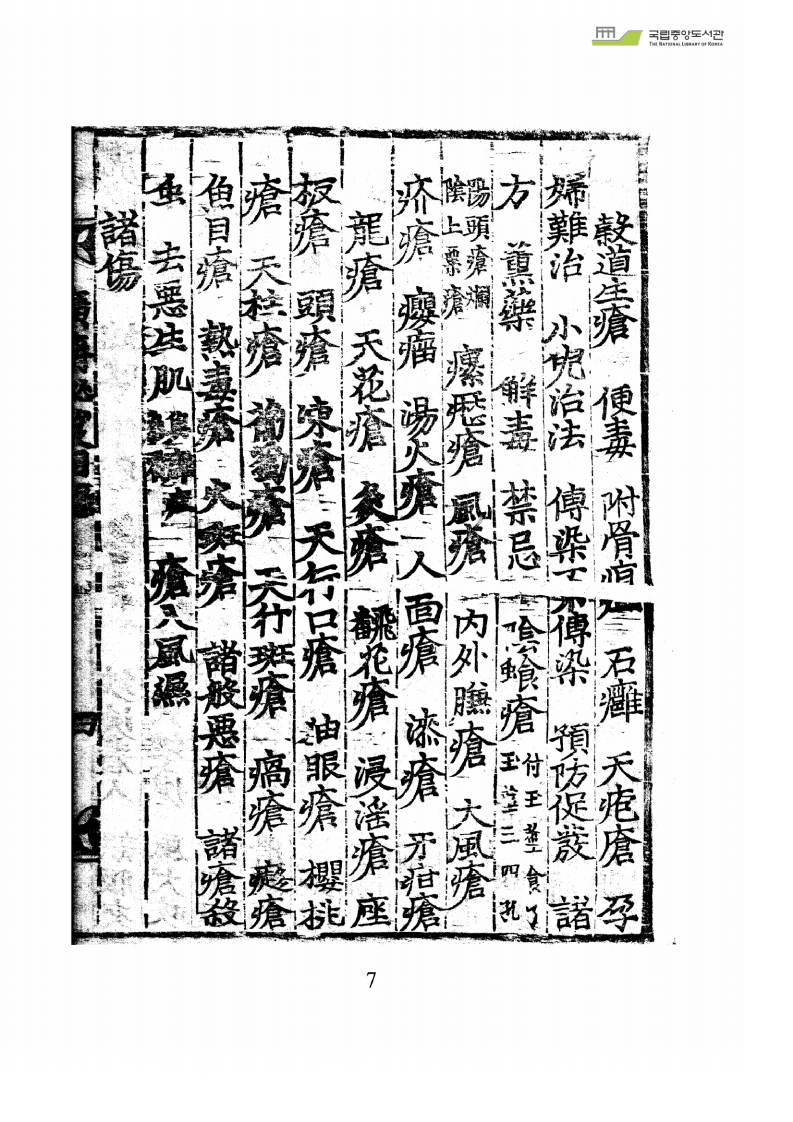 국립중앙도서관
THE NATIONAL LIBRARY OF KOREA
穀道生瘡 便毒 附骨疽 石癰 天疱瘡 孕
婦難治 小児治法 傳染 傳染 預防促發 諸
方 薫藥 解毒 禁忌 陰蝕瘡
陽頭瘡爛
陰上粟瘡 瘰癧瘡 風瘡 内外臁瘡 大風瘡
疥瘡 癭瘤 湯火瘡 人面瘡 漆瘡 牙疳瘡
龍瘡 天花瘡 灸瘡 翻花瘡 浸滛瘡 座
板瘡 頭瘡 凍瘡 天行口瘡 油眼瘡 櫻桃
瘡 天柱瘡 葡萄瘡 天行斑瘡 瘑瘡 癡瘡
魚目瘡 熱毒瘡 火斑瘡 諸般悪瘡 諸瘡殺
虫 去惡生肌 瘡入風濕
諸傷
7